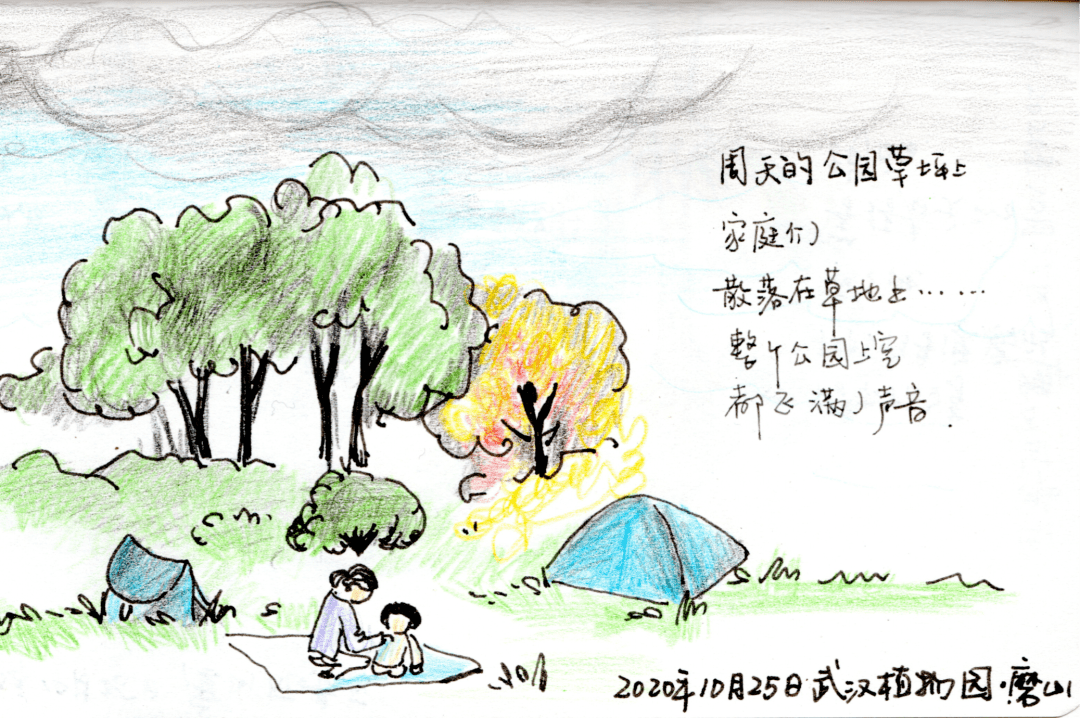 周天的公园草坪上
家庭们
散落在草地上……
整个公园上空
都飞满了声音.
2020年10月25日武汉植物园·磨山